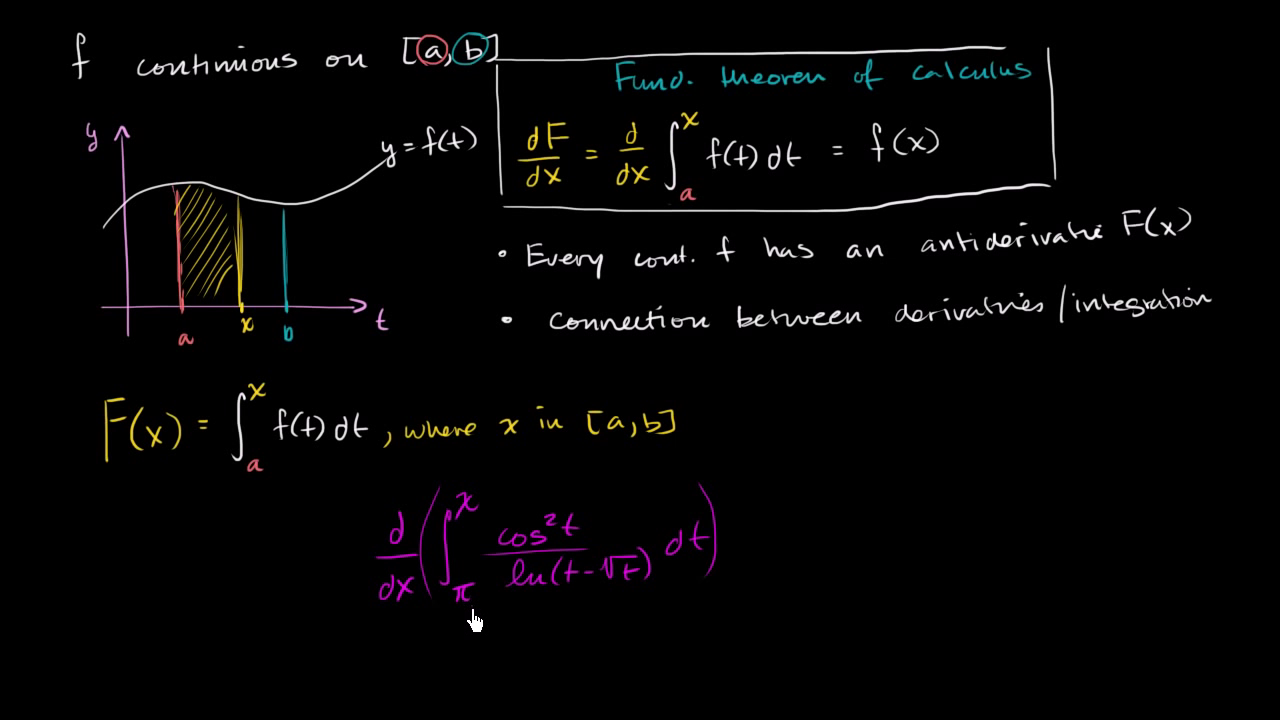 f continuous on [a, b]
Fund. theorem of calculus
dF/dx = d/dx ∫ₐˣ f(t) dt = f(x)
y
y = f(t)
a x b t
• Every cont. f has an antiderivative F(x)
• connection between derivatives/integration
F(x) = ∫ₐˣ f(t) dt, where x in [a, b]
d/dx (∫_π^x cos²t / ln(t-√t) dt)